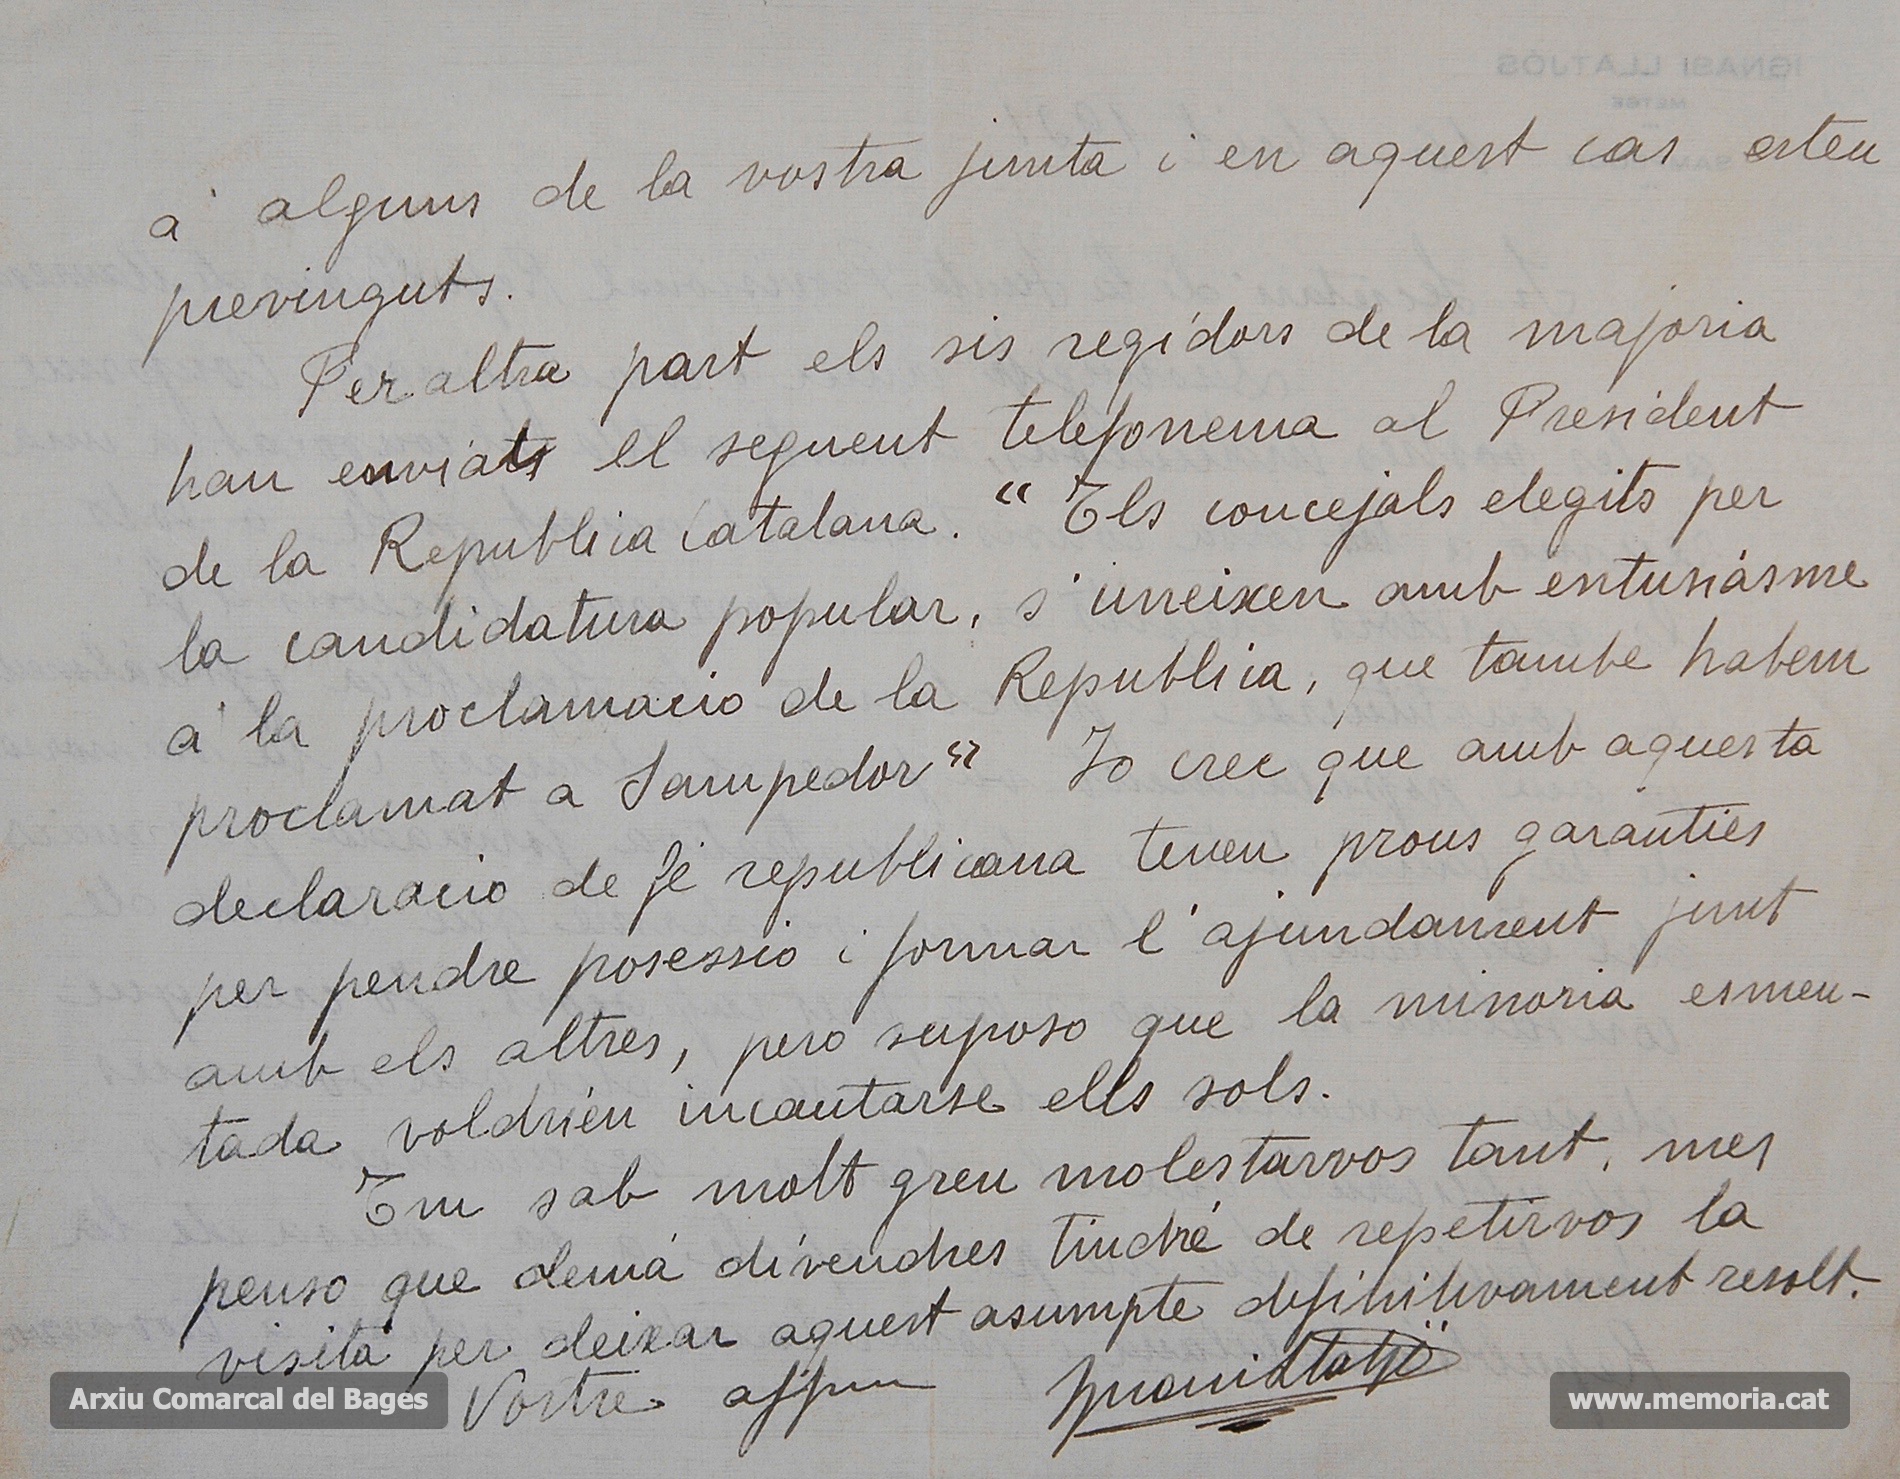 à alguns de la vostra junta i en aquest cas esteu
previnguts.
Per altra part els sis regidors de la majoria
han enviats el seguent telefonema al President
de la Republica Catalana. "Els concejals elegits per
la candidatura popular, s'uneixen amb entusiàsme
à la proclamacio de la Republica, que tambe habem
proclamat a Sampedor" Jo crec que amb aquesta
declaracio de fé republicana teneu prous garanties
per pendre posessio i formar l'ajundament junt
amb els altres, pero suposo que la minoria esmeu-
tada voldrién incautarse ells sols.
Em sab molt greu molestarvos tant, mes
penso que demá divendres tindré de repetirvos la
visita per deixar aquest asumpte definitivament resolt.
Vostre affm
Ignasi Llatjós
IGNASI LLATJÓS
METGE
Arxiu Comarcal del Bages
www.memoria.cat